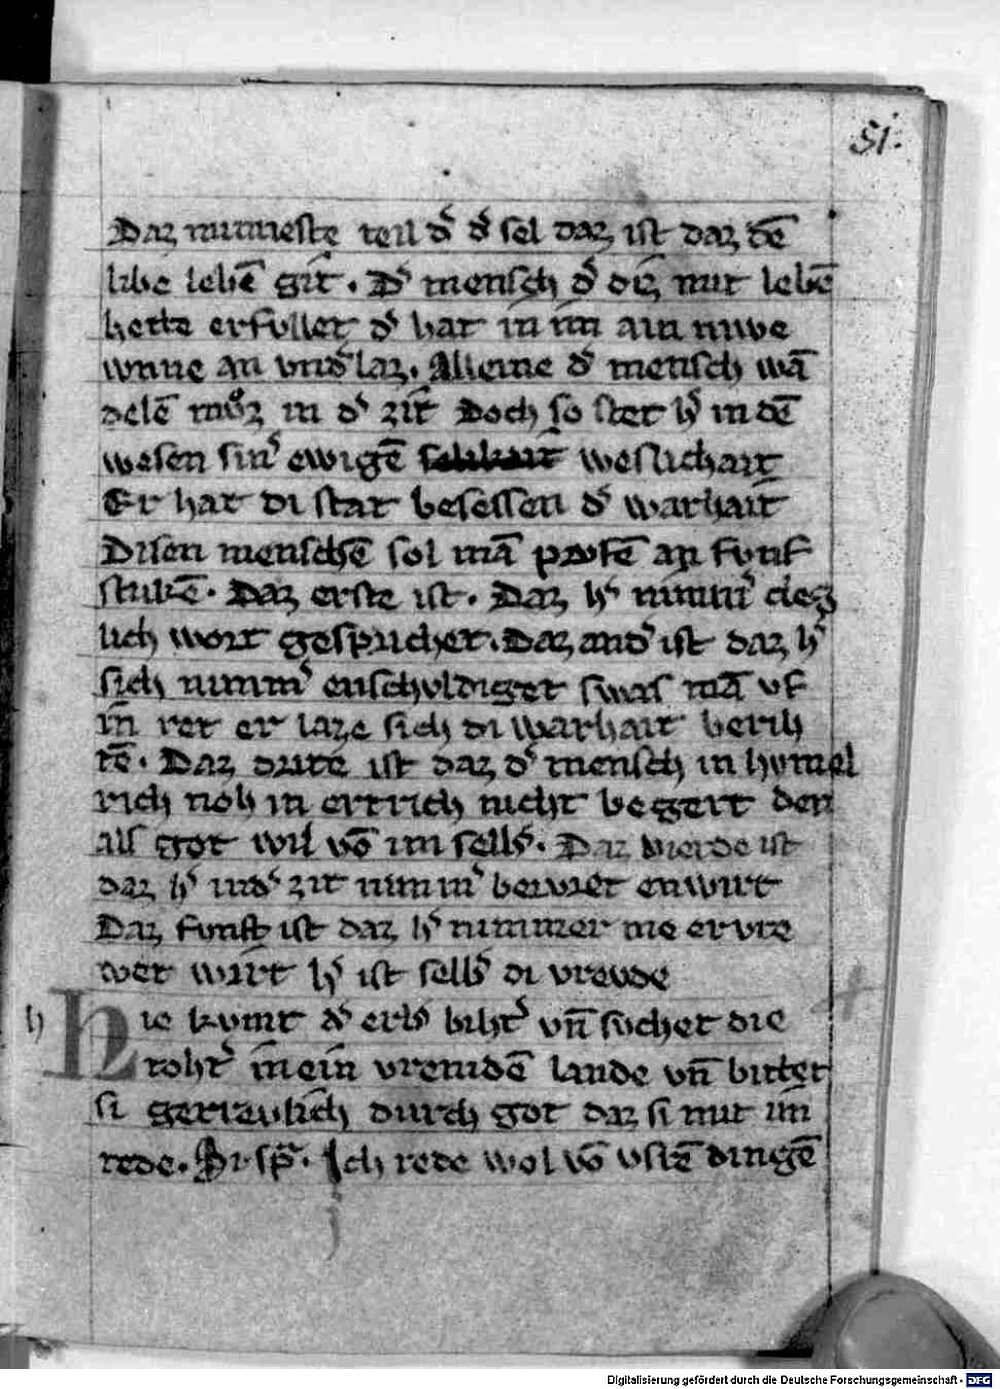 51.
Daz minneste teil d᷑ d᷑ sel daz ist daz dē
libe lebē git. D᷑ mensch d᷑ diz mit lebē
hette erfullet d᷑ hat in im ain niwe
wnne an vnd᷑laz. Alleine d᷑ mensch wā
delē muͦz in d᷑ zit Doch so stet h᷑ in dē
wesen sin᷑ ewigē weslichait
Er hat di stat besessen d᷑ warhait
Disen menschē sol mā pruͤfē an funf
stukē. Daz erste ist. Daz h᷑ nimm᷑
lich wort gesprichet. Daz and᷑ ist daz h᷑
sich nimm᷑ enschuldiget swas mā uf
in ret er laze sich di warhait berih
tē. Daz drite ist daz d᷑ mensch in hymel
rich noh in ertrich nicht begert den
als got wil vō im selb᷑. Daz vierde ist
daz h᷑ in d᷑ zit nimm᷑ bewiet enwirt
Daz funft ist daz h᷑ nimmer me ervre
wet wirt h᷑ ist selb᷑ di vreude
h Hie kumt d᷑ erb᷑ biht᷑ vn̄ suchet die
toht᷑ in ein vremdē lande vn̄ bittet
si getrǎulich durch got daz si mit im
rede. Si sp̄. Ich rede wol vō vstē dingē
Digitalisierung gefördert durch die Deutsche Forschungsgemeinschaft - DFG